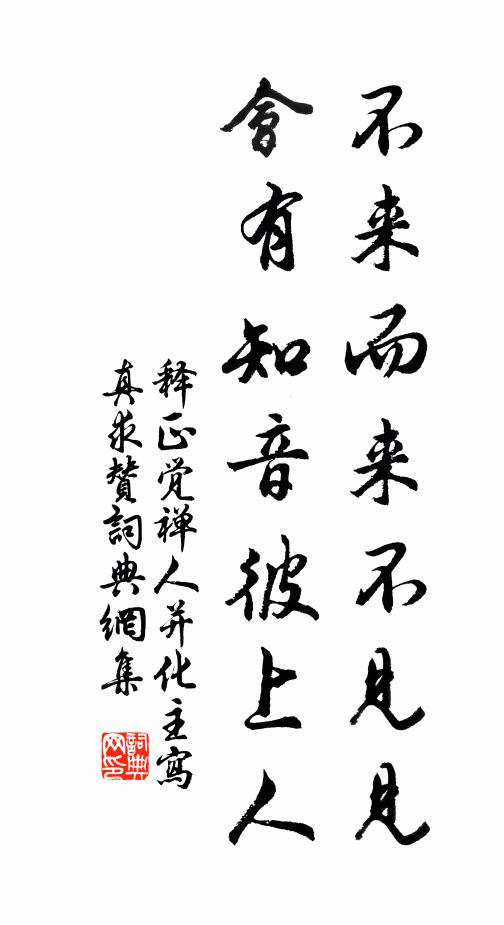 不来而来不见见
會有知音彼上人
释正觉禅人并化主寫
真求赞詞典網集
詞典
网印